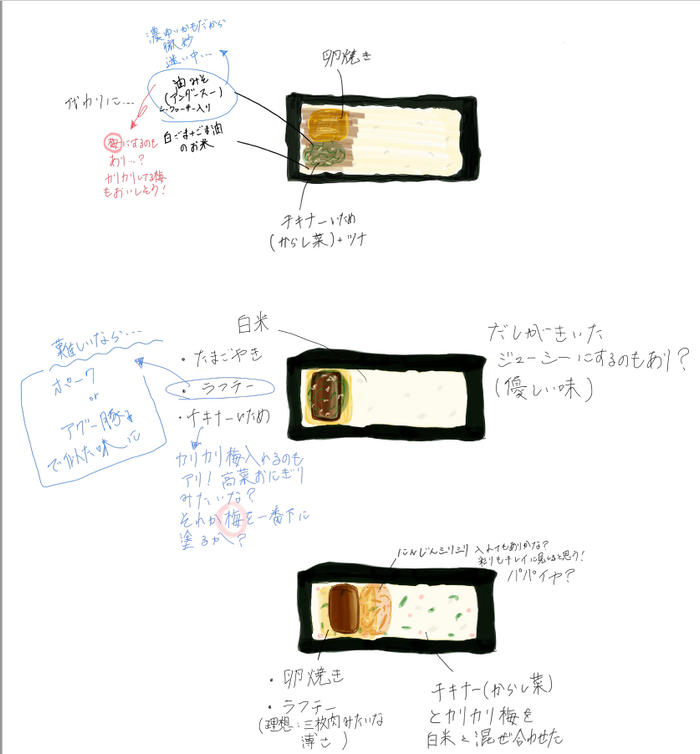 濃ゆいかもだから
微妙
迷い中…
油みそ
(アンダースー)
白ごま+ごま油
のお米
代わりに…
梅にになるのも
あり…?
カリカリしてる梅
もおいしそう!
卵焼き
チキナーいため
(からし菜)+ツナ
白米
難しいなら…
ポーク
or
アグー豚を
で似た味に
・たまごやき
・ラフテー
・チキナーいため
カリカリ梅入れるのも
アリ!高菜おにぎり
みたいな?
それか梅を一番下に
塗るか?
だしがきいた
ジューシーにするのもあり?
(優しい味)
にんじんシリシリ入れてもありかな?
彩りもキレイに見えると思う!
パパイヤ?
・卵焼き
・ラフテー
(理想:三枚肉みたいな
薄さ)
チキナー(からし菜)
とカリカリ梅を
白米と混ぜ合わせた